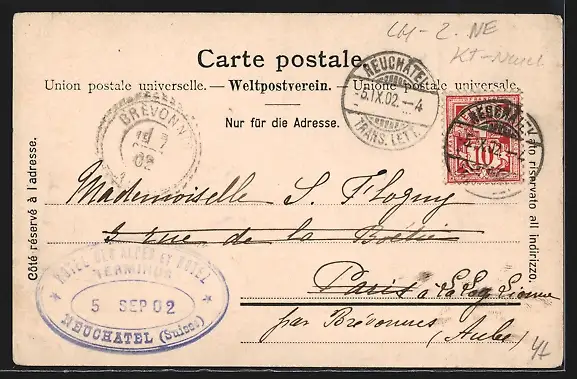 CH-2. NE
KT-
Carte postale.
Union postale universelle. — Weltpostverein. — Unione postale universale.
Nur für die Adresse.
NEUCHATEL
5.IX.02.-4
TRANS. LETT.
NEUCHATEL
IX.02.-4
10
BREVONNES
02
Côté réservé à l'adresse.
lato riservato all indirizzo.
Mademoiselle S. Flogny
3 rue de la Boëtie
Paris à la
par Brévonnes (Aube)
HOTEL DES ALPES ET HOTEL
TERMINUS
5 SEP 02
NEUCHATEL (Suisse)